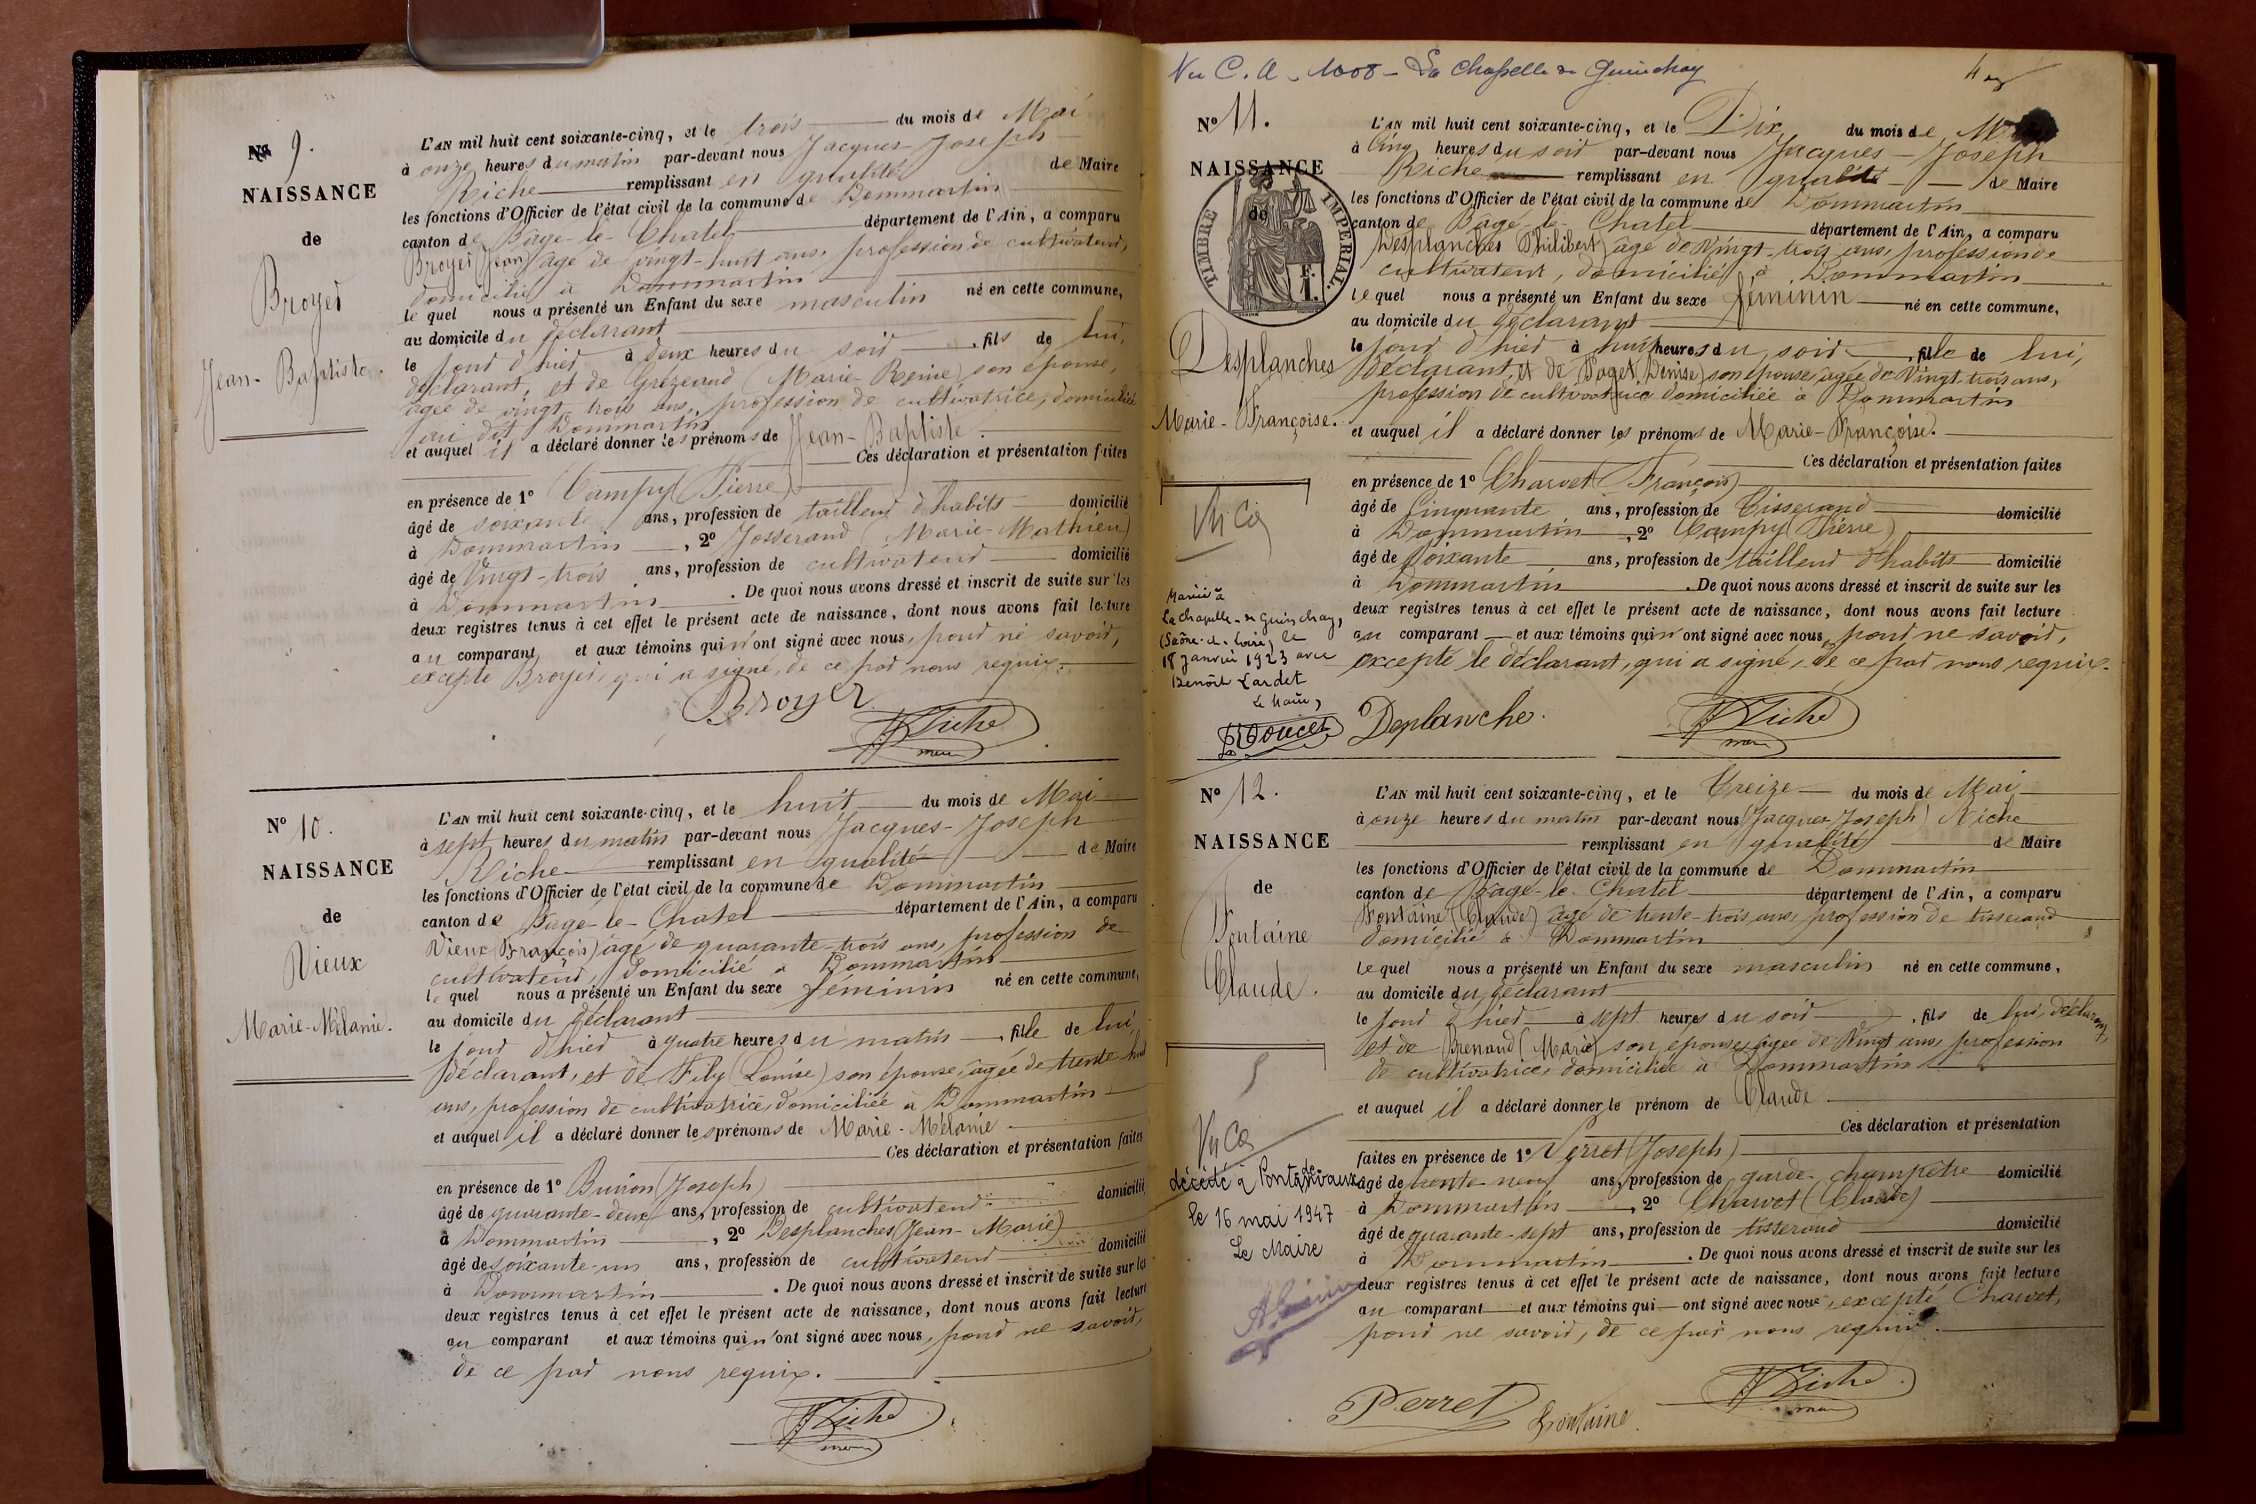 No 9.
NAISSANCE
de
Broyer
Jean-Baptiste.
L'AN mil huit cent soixante-cinq, et le trois du mois de Mai
à onze heures du matin par-devant nous Jacques-Joseph
Riche remplissant en qualité de Maire
les fonctions d'Officier de l'état civil de la commune de Dommartin
canton de Bâgé-le-Chatel département de l'Ain, a comparu
Broyer (Jean) âgé de vingt-huit ans, profession de cultivateur,
domicilié à Dommartin
le quel nous a présenté un Enfant du sexe masculin né en cette commune,
au domicile du déclarant
le jour d'hier à deux heures du soir, fils de lui,
déclarant, et de (Marie-Reine) son épouse,
âgée de vingt trois ans, profession de cultivatrice, domiciliée
au dit Dommartin
et auquel il a déclaré donner les prénoms de Jean-Baptiste.
Ces déclaration et présentation faites
en présence de 1° Campy (Pierre)
âgé de soixante ans, profession de tailleur d'habits domicilié
à Dommartin, 2° Josserand (Marie-Mathieu)
âgé de Vingt-trois ans, profession de cultivateur domicilié
à Dommartin. De quoi nous avons dressé et inscrit de suite sur les
deux registres tenus à cet effet le présent acte de naissance, dont nous avons fait lecture
au comparant et aux témoins qui n'ont signé avec nous, pour ne savoir,
excepté Broyer, qui a signé, de ce par nous requis.
Broyer
J Riche
maire
No 10.
NAISSANCE
de
Vieux
Marie-Mélanie.
L'AN mil huit cent soixante-cinq, et le huit du mois de Mai
à sept heures du matin par-devant nous Jacques-Joseph
Riche remplissant en qualité de Maire
les fonctions d'Officier de l'état civil de la commune de Dommartin
canton de Bâgé-le-Chatel département de l'Ain, a comparu
Vieux (François) âgé de quarante-trois ans, profession de
cultivateur, domicilié à Dommartin
le quel nous a présenté un Enfant du sexe féminin né en cette commune,
au domicile du déclarant
le jour d'hier à quatre heures du matin, fille de lui
déclarant, et de Fily (Louise) son épouse, âgée de trente huit
ans, profession de cultivatrice, domiciliée à Dommartin
et auquel il a déclaré donner les prénoms de Marie-Mélanie
Ces déclaration et présentation faites
en présence de 1° Buiron (Joseph)
âgé de quarante-deux ans, profession de cultivateur domicilié
à Dommartin, 2° Desplanches (Jean-Marie)
âgé de soixante-un ans, profession de cultivateur domicilié
à Dommartin. De quoi nous avons dressé et inscrit de suite sur les
deux registres tenus à cet effet le présent acte de naissance, dont nous avons fait lecture
au comparant et aux témoins qui n'ont signé avec nous, pour ne savoir,
de ce par nous requis.
J Riche
maire
Vu C. A. 1008 - La Chapelle de Guinchay
No 11.
NAISSANCE
de
TIMBRE IMPERIAL.
Desplanches
Marie-Françoise.
Mariée à
La Chapelle-de Guinchay,
(Saône-et-Loire) le
18 janvier 1923 avec
Benoît Lardet
Le Maire,
Doucet
L'AN mil huit cent soixante-cinq, et le Dix du mois de Mai
à Cinq heures du soir par-devant nous Jacques-Joseph
Riche remplissant en qualité de Maire
les fonctions d'Officier de l'état civil de la commune de Dommartin
canton de Bâgé-le-Chatel département de l'Ain, a comparu
Desplanches (Philibert) âgé de Vingt-trois ans, profession de
cultivateur, domicilié à Dommartin
le quel nous a présenté un Enfant du sexe féminin né en cette commune,
au domicile du déclarant
le jour d'hier à huit heures du soir, fille de lui,
déclarant, et de Paget (Denise) son épouse, âgée de Vingt-trois ans,
profession de cultivatrice domiciliée à Dommartin
et auquel il a déclaré donner les prénoms de Marie-Françoise.
Ces déclaration et présentation faites
en présence de 1° Charvet (François)
âgé de Cinquante ans, profession de Tisserand domicilié
à Dommartin, 2° Campy (Pierre)
âgé de Soixante ans, profession de tailleur d'habits domicilié
à Dommartin. De quoi nous avons dressé et inscrit de suite sur les
deux registres tenus à cet effet le présent acte de naissance, dont nous avons fait lecture
au comparant et aux témoins qui n'ont signé avec nous, pour ne savoir,
excepté le déclarant, qui a signé, de ce par nous requis.
Deplanche.
J Riche
maire
No 12.
NAISSANCE
de
Fontaine
Claude.
décédé à Pont-de-Vaux
le 16 mai 1947
Le Maire
L'AN mil huit cent soixante-cinq, et le Treize du mois de Mai
à onze heures du matin par-devant nous (Jacques-Joseph) Riche
remplissant en qualité de Maire
les fonctions d'Officier de l'état civil de la commune de Dommartin
canton de Bâgé-le-Chatel département de l'Ain, a comparu
Fontaine (Claude) âgé de trente-trois ans, profession de tisserand
domicilié à Dommartin
le quel nous a présenté un Enfant du sexe masculin né en cette commune,
au domicile du déclarant
le jour d'hier à sept heures du soir, fils de lui, déclarant,
et de Brenaud (Marie) son épouse, âgée de Vingt ans, profession
de cultivatrice, domiciliée à Dommartin
et auquel il a déclaré donner le prénom de Claude
Ces déclaration et présentation
faites en présence de 1° Perret (Joseph)
âgé de trente-neuf ans, profession de garde-champêtre domicilié
à Dommartin, 2° Charvet (Claude)
âgé de quarante-sept ans, profession de tisserand domicilié
à Dommartin. De quoi nous avons dressé et inscrit de suite sur les
deux registres tenus à cet effet le présent acte de naissance, dont nous avons fait lecture
au comparant et aux témoins qui ont signé avec nous, excepté Charvet,
pour ne savoir, de ce par nous requis.
Perret
Fontaine
J Riche
maire